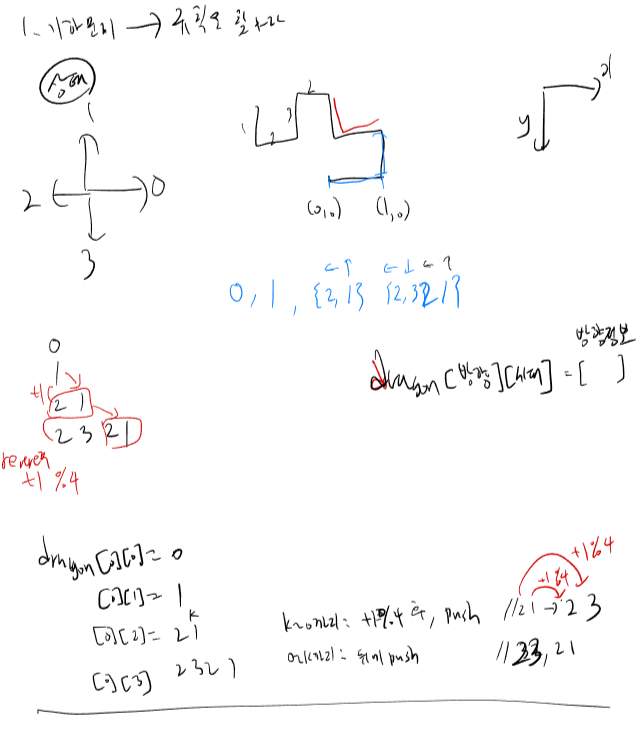 1. 기하문제 →
상태
1
2
0
3
1
2
3
2
(0,0) (1,0)
x
y
← ↑ ← ↓ ← ↑
0, 1, {2,1} {2,321}
0
1
+1
2 1
2 3 2 1
reverse
+1 %4
방향정보
dragon[방향][세대] = [ ]
dragon[0][0] = 0
[0][1] = 1
k
[0][2] = 21
[0][3] 2321
k~0까지: +1%4 후, push
뒤에 push
+1%4
+1%4
//21 → 23
//23, 21